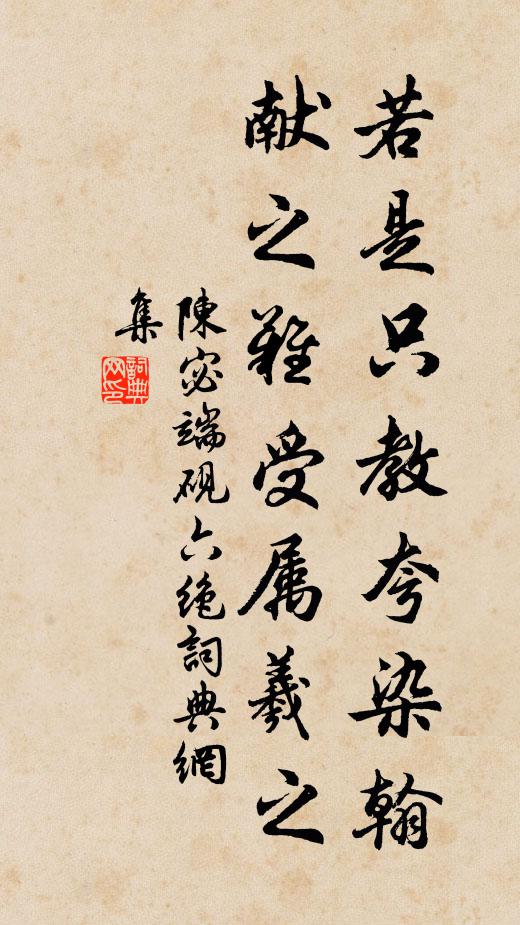 若是只教夸染翰
献之难受属羲之
陳宓端硯六絶詞典網
集
詞典网印